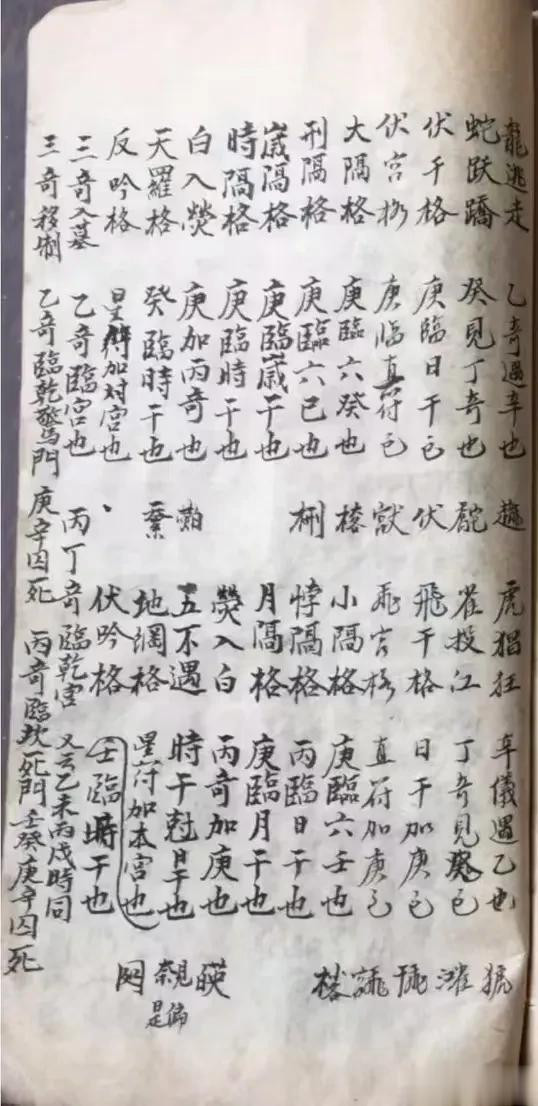 龍逃走 乙奇遇辛也 虎猖狂 辛儀遇乙也
蛇跃蹻 癸見丁奇也 雀投江 丁奇見癸已
伏干格 庚臨日干已 伏 飛干格 日干加庚已
伏宫格 庚临直符已 飛宫格 直符加庚已
大隔格 庚臨六癸也 小隔格 庚臨六壬也
刑隔格 庚臨六已也 悖隔格 丙臨日干也
歲隔格 庚臨歲干也 月隔格 庚臨月干也
時隔格 庚臨時干也 熒入白 丙奇加庚也
白入熒 庚加丙奇也 五不遇 時干尅日干也
天羅格 癸臨時干也 地網格 星符加本宫也
反吟格 星符加对宫也 伏吟格 壬臨時干也
三奇入墓 乙奇臨宫也 丙丁奇臨乾宫 又云乙未丙戌時同
三奇移制 乙奇臨乾驚門 庚辛囚死 丙奇臨坎死門 壬癸庚辛囚死